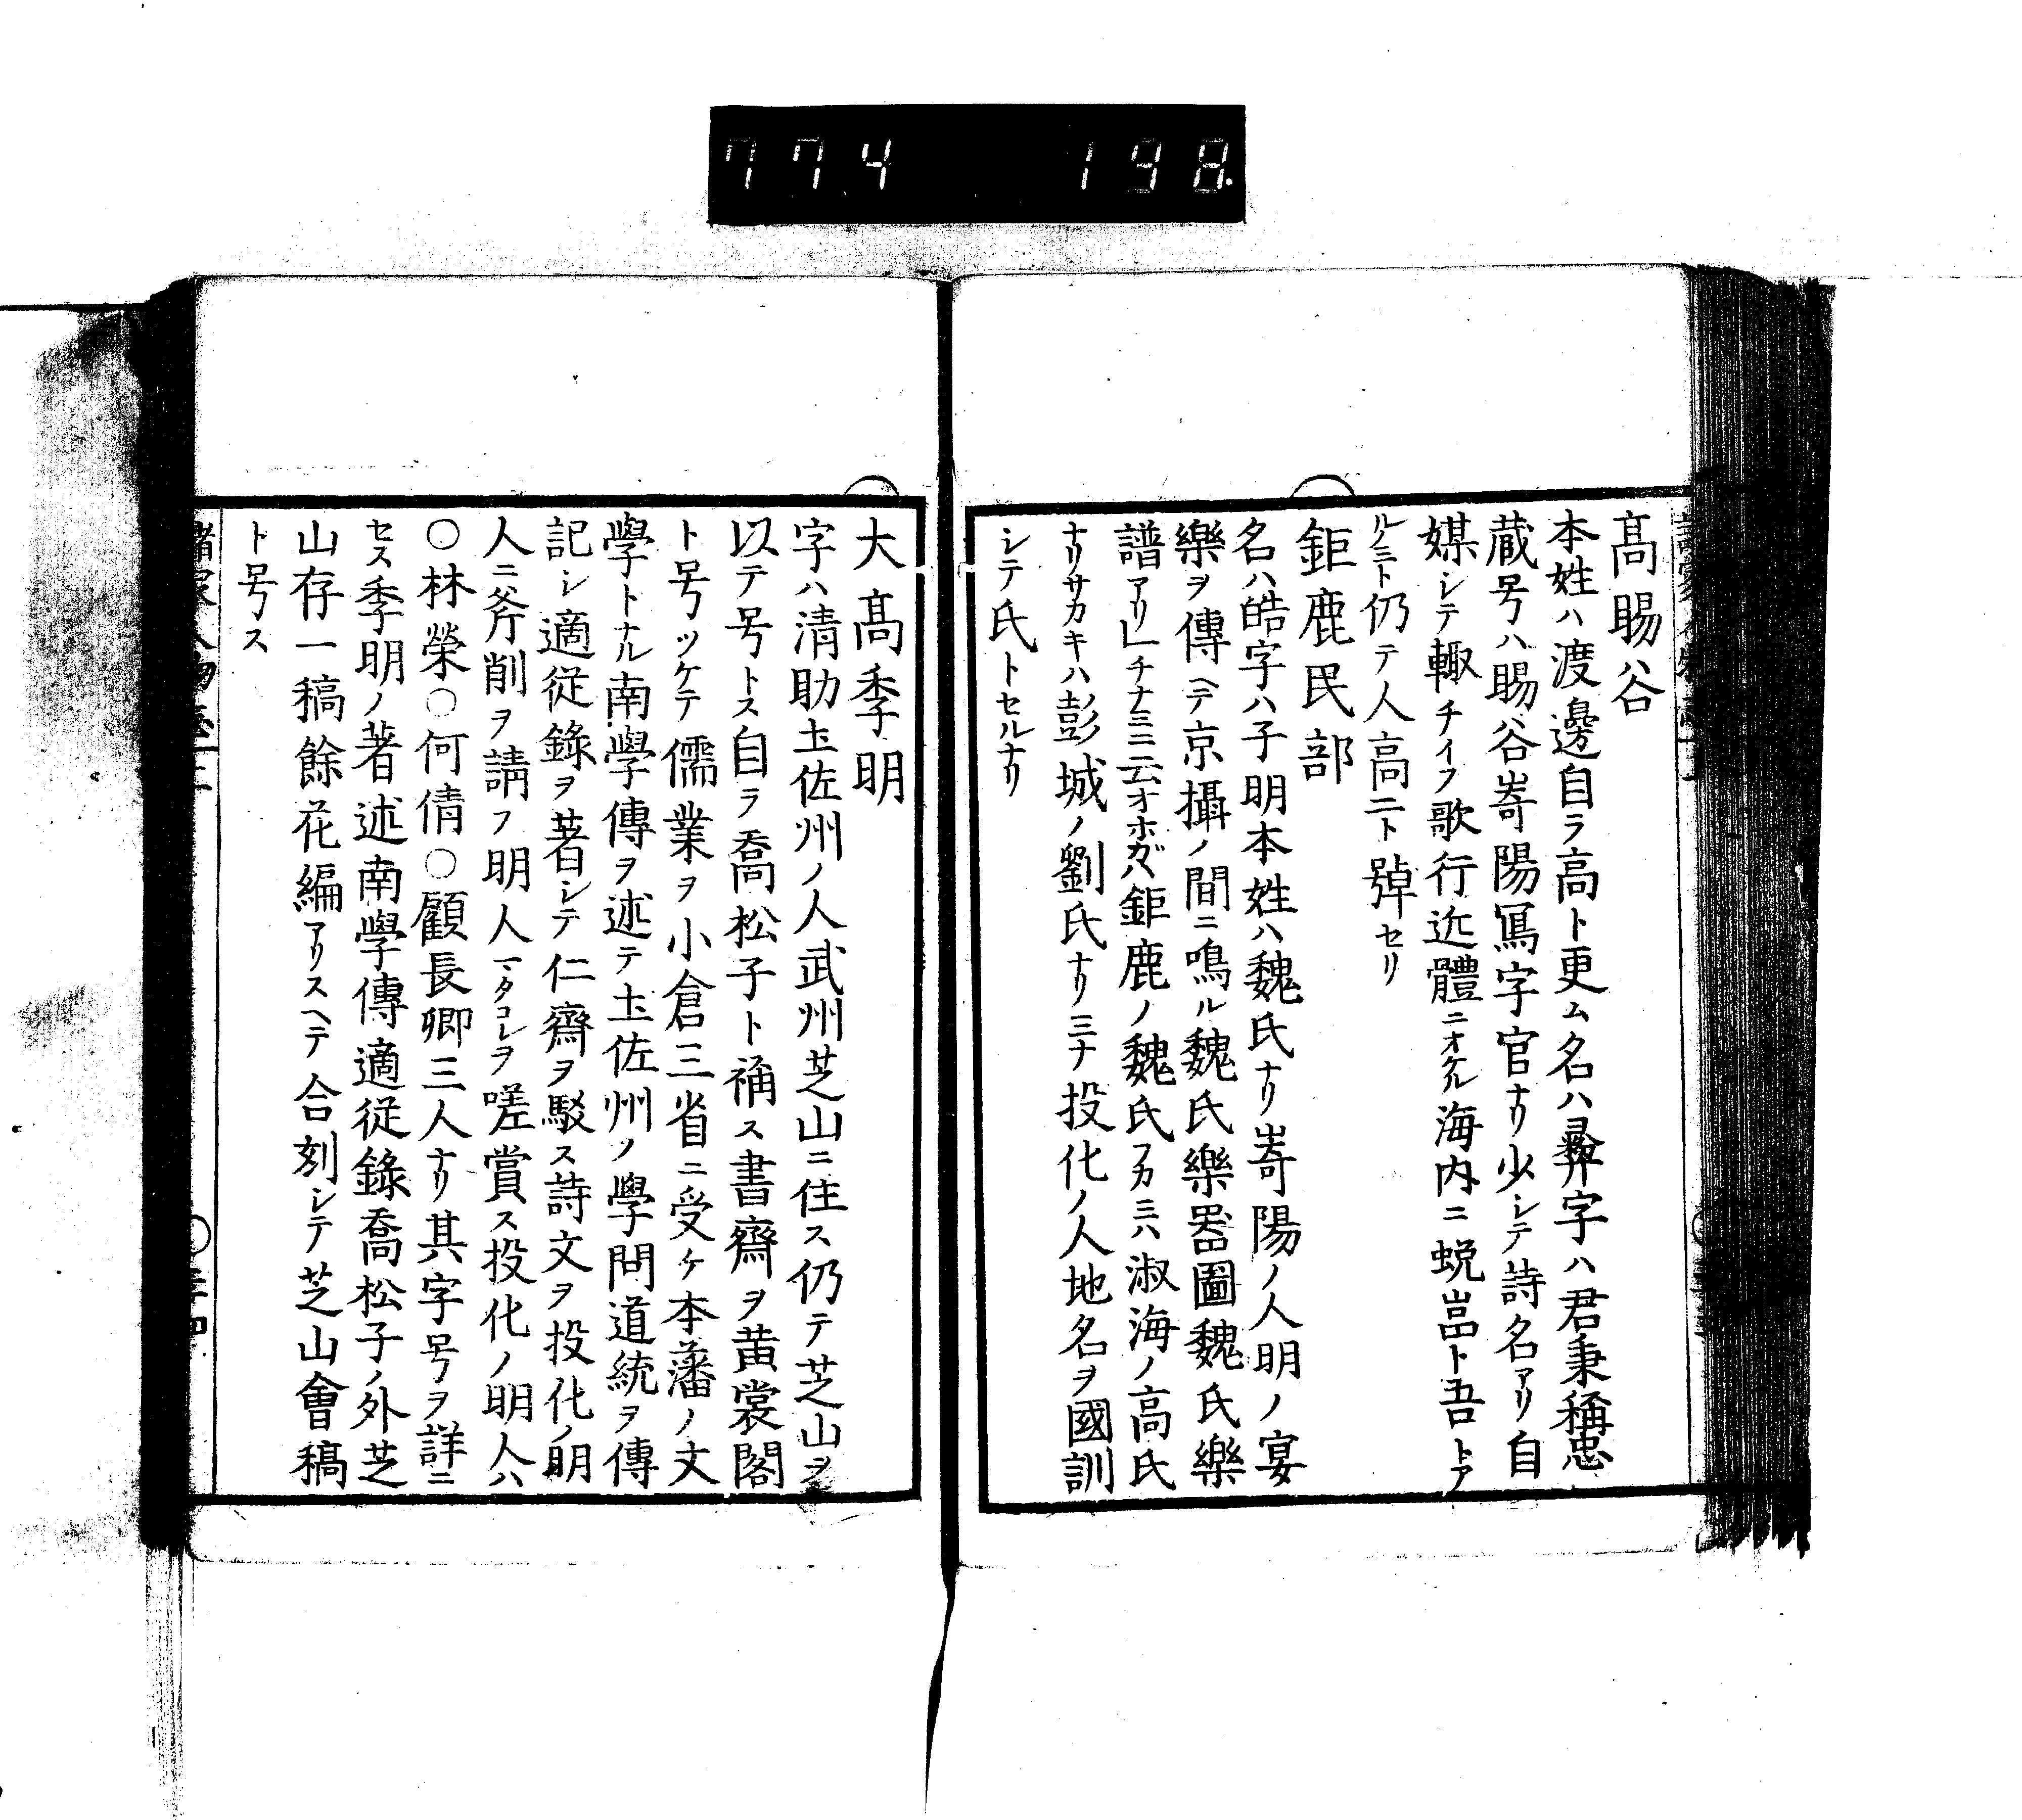 774 198
髙暘谷
本姓ハ渡邊自ラ高ト更ム名ハ彛字ハ君秉稱忠
蔵号ハ暘谷嵜陽冩字官ナリ少シテ詩名アリ自
媒シテ輙チイフ歌行近體ニオケル海内ニ蜕嵓ト吾トア
ルノミト仍テ人高ニト踔セリ
鉅鹿民部
名ハ皓字ハ子明本姓ハ魏氏ナリ嵜陽ノ人明ノ宴
樂ヲ傳ヘテ京攝ノ間ニ鳴ル魏氏樂噐圖魏氏樂
譜アリ」チナミニ云オホガハ鉅鹿ノ魏氏フカミハ淑海ノ高氏
ナリサカキハ彭城ノ劉氏ナリミナ投化ノ人地名ヲ國訓
シテ氏トセルナリ
大髙季明
字ハ清助土佐州ノ人武州芝山ニ住ス仍テ芝山ヲ
以テ号トス自ラ喬松子ト稱ス書齋ヲ黄裳閣
ト号ツケテ儒業ヲ小倉三省ニ受ケ本藩ノ丈
學トナル南學傳ヲ述テ土佐州ノ學問道統ヲ傳
記シ適従錄ヲ著シテ仁齋ヲ駁ス詩文ヲ投化ノ明
人ニ斧削ヲ請フ明人マタコレヲ嗟賞ス投化ノ明人ハ
○林榮○何倩○顧長卿三人ナリ其字号ヲ詳ニ
セス季明ノ著述南學傳適従錄喬松子ノ外芝
山存一稿餘花編アリスヘテ合刻シテ芝山會稿
ト号ス